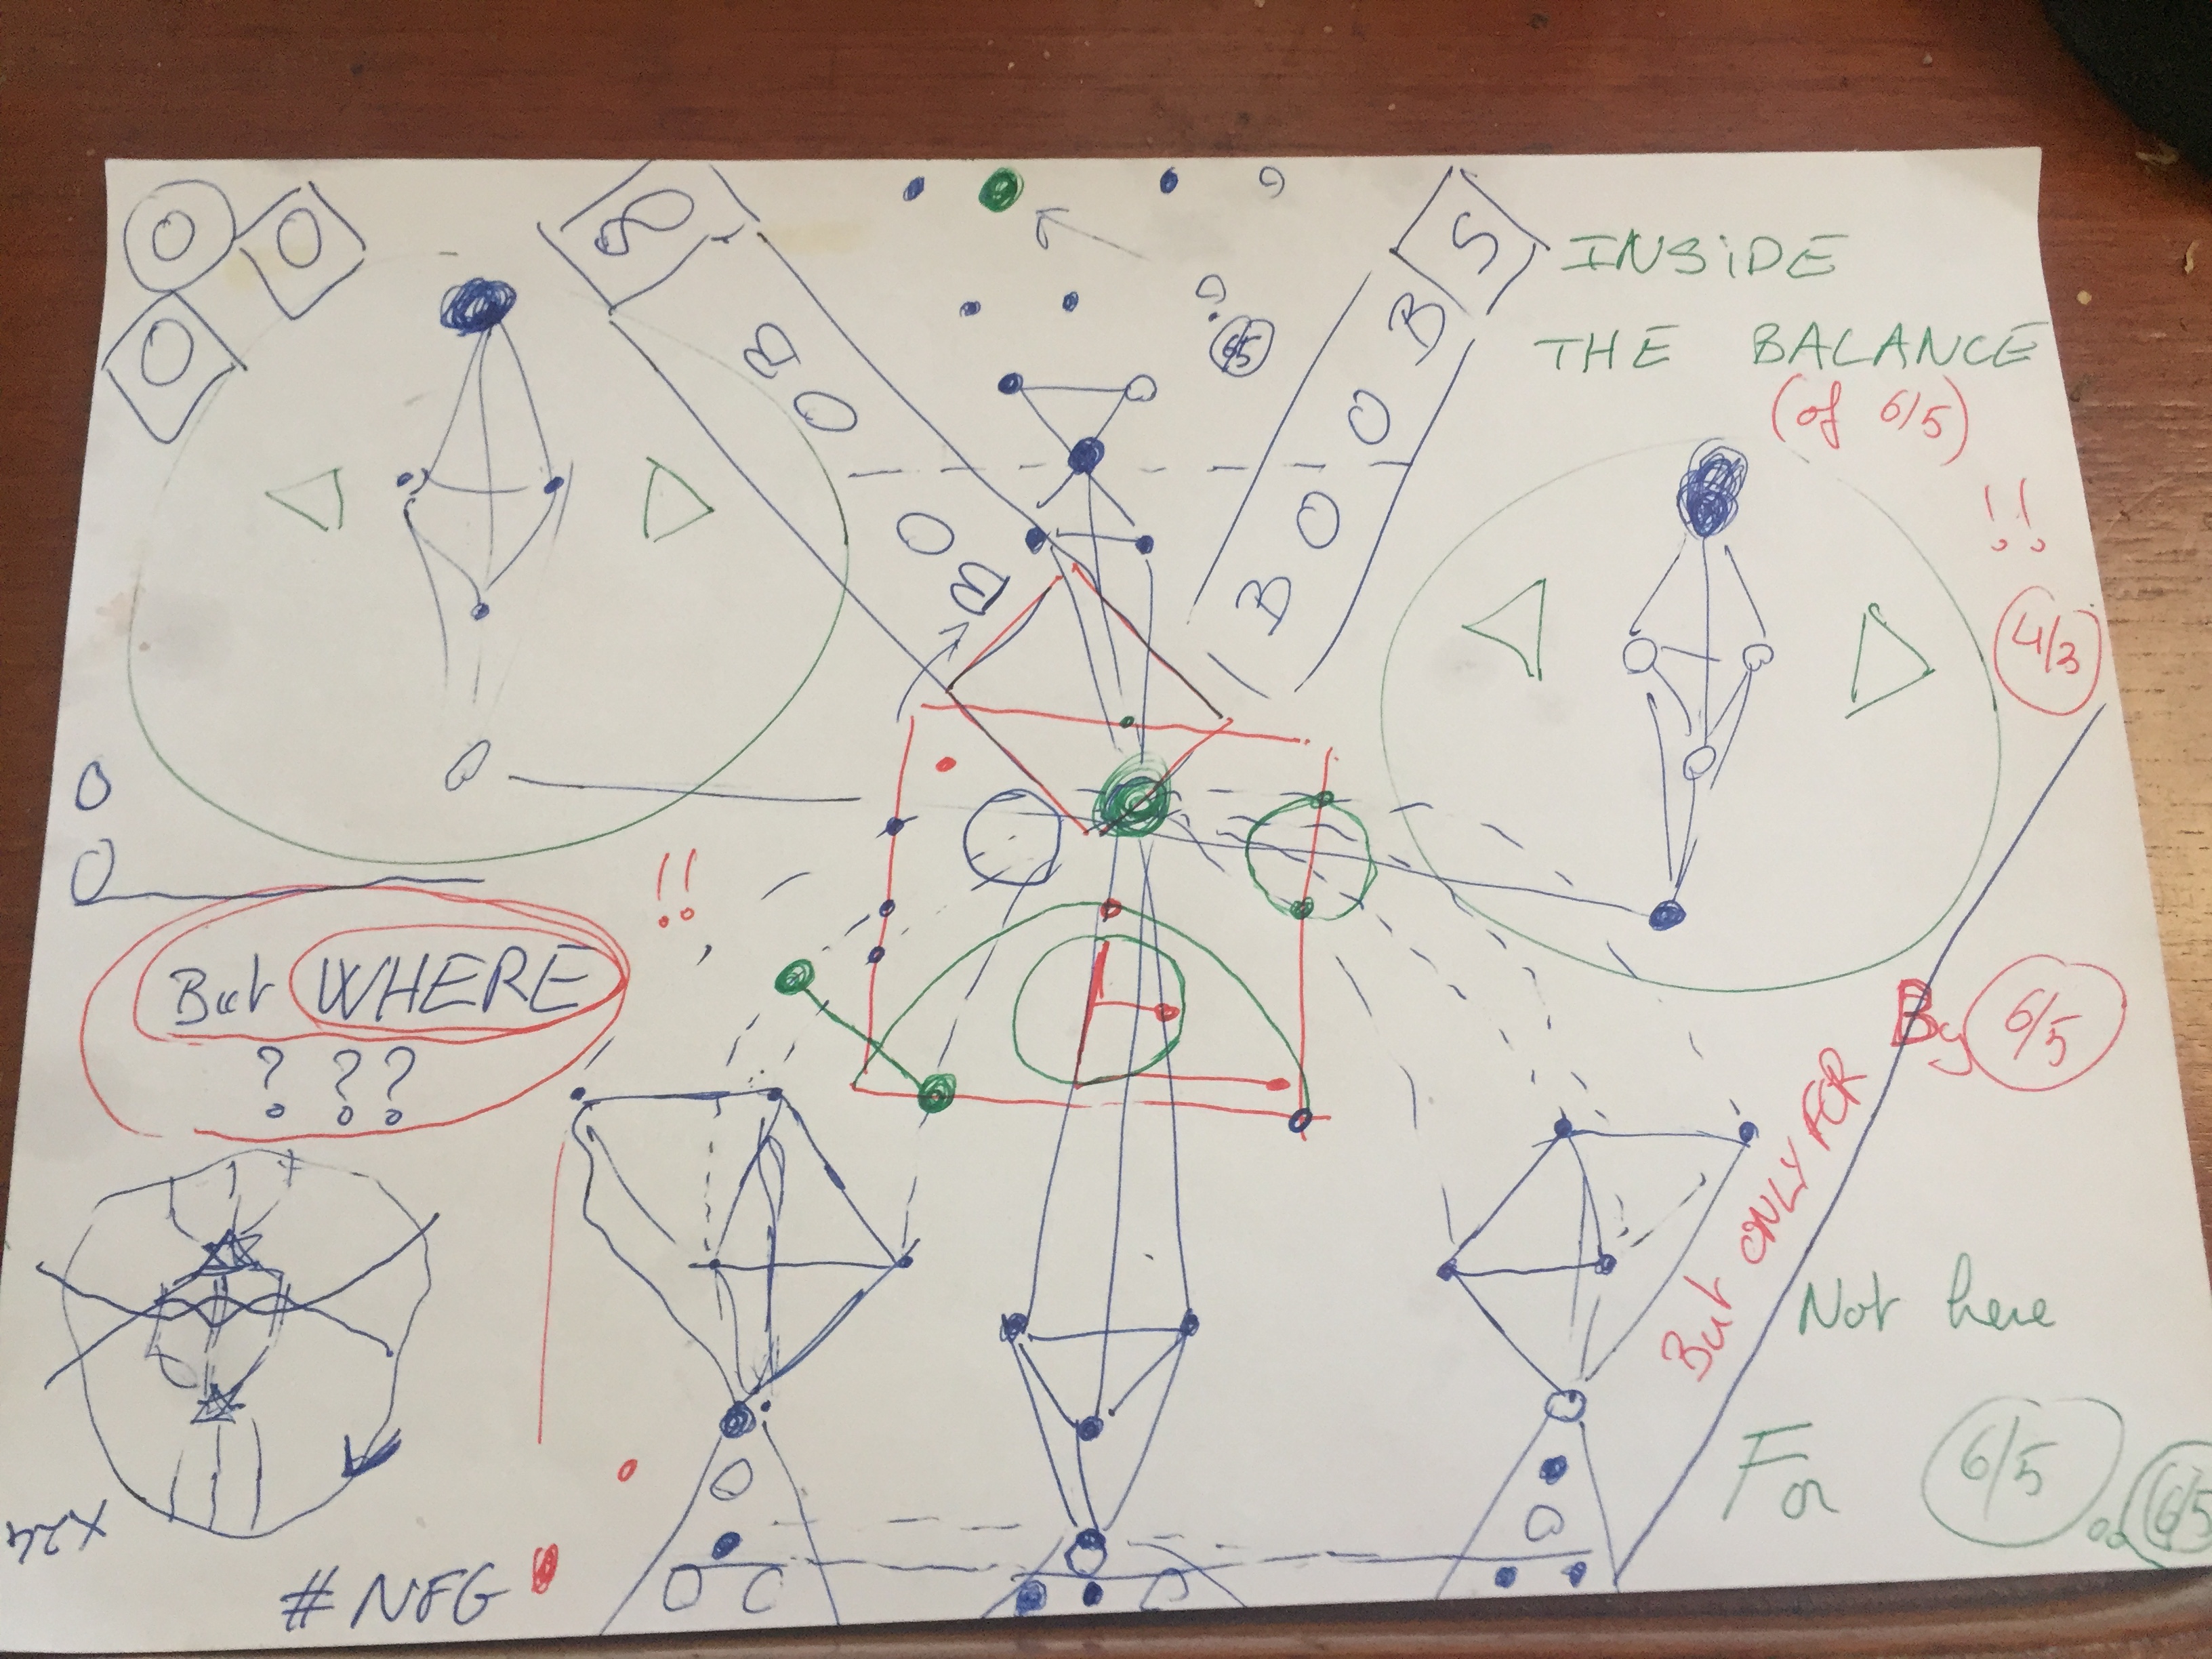 O
O
O
8
B
O
O
B
S
B
O
O
B
6/5
INSiDE
THE BALANCE
(of 6/5)
!!
4/3
O
O
!!
But WHERE
? ? ?
By 6/5
But ONLY FOR
Not here
For 6/5
6/5
#NFG